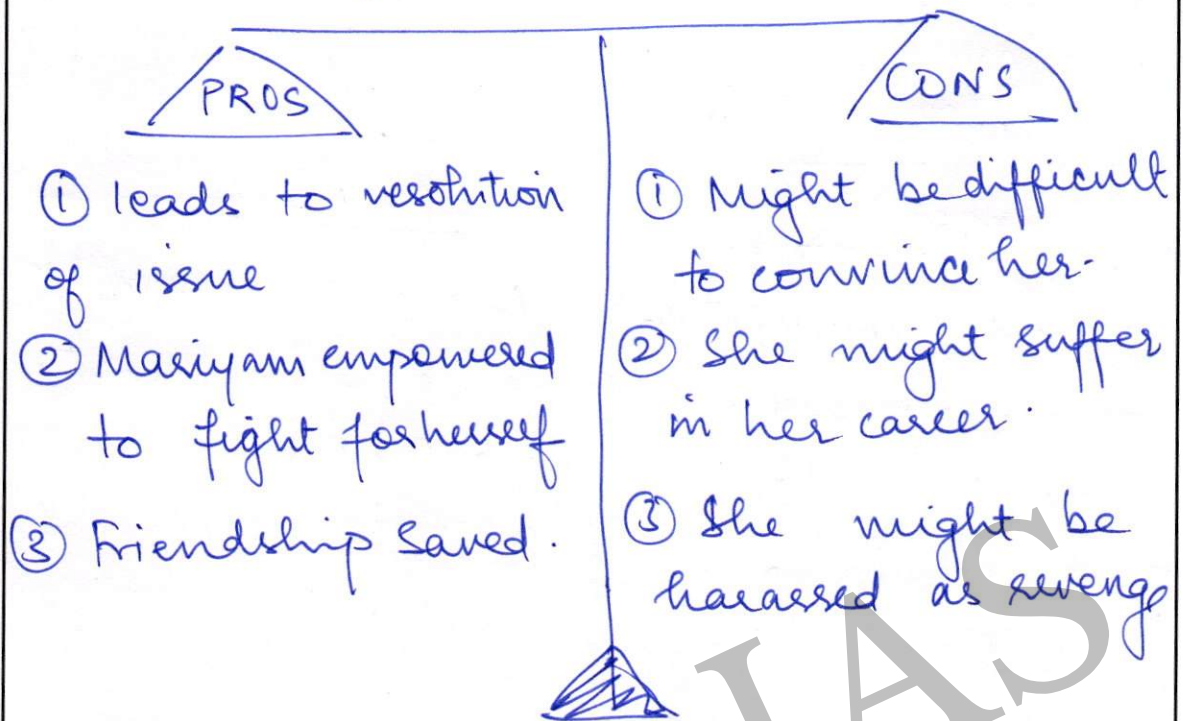 PROS
① leads to resolution
of issue
② Mariyam empowered
to fight for herself
③ Friendship Saved.
CONS
① Might be difficult
to convince her.
② She might suffer
in her career.
③ She might be
harassed as revenge
IAS